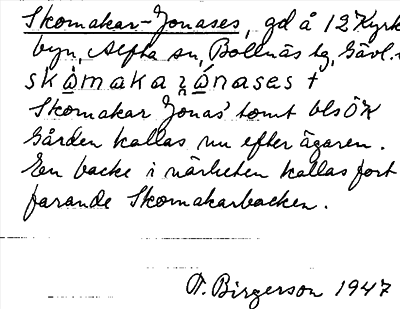 Skomakar-Jonases, gd å 12 Kyrk
byn, Alfta sn, Bollnäs tg, Gävl.
skòmakaʒónases t
Skomakar Jonas' tomt bls ÖK
Gården kallas nu efter ägaren.
En backe i närheten kallas fort
farande Skomakarbacken.
T. Birgerson 1947